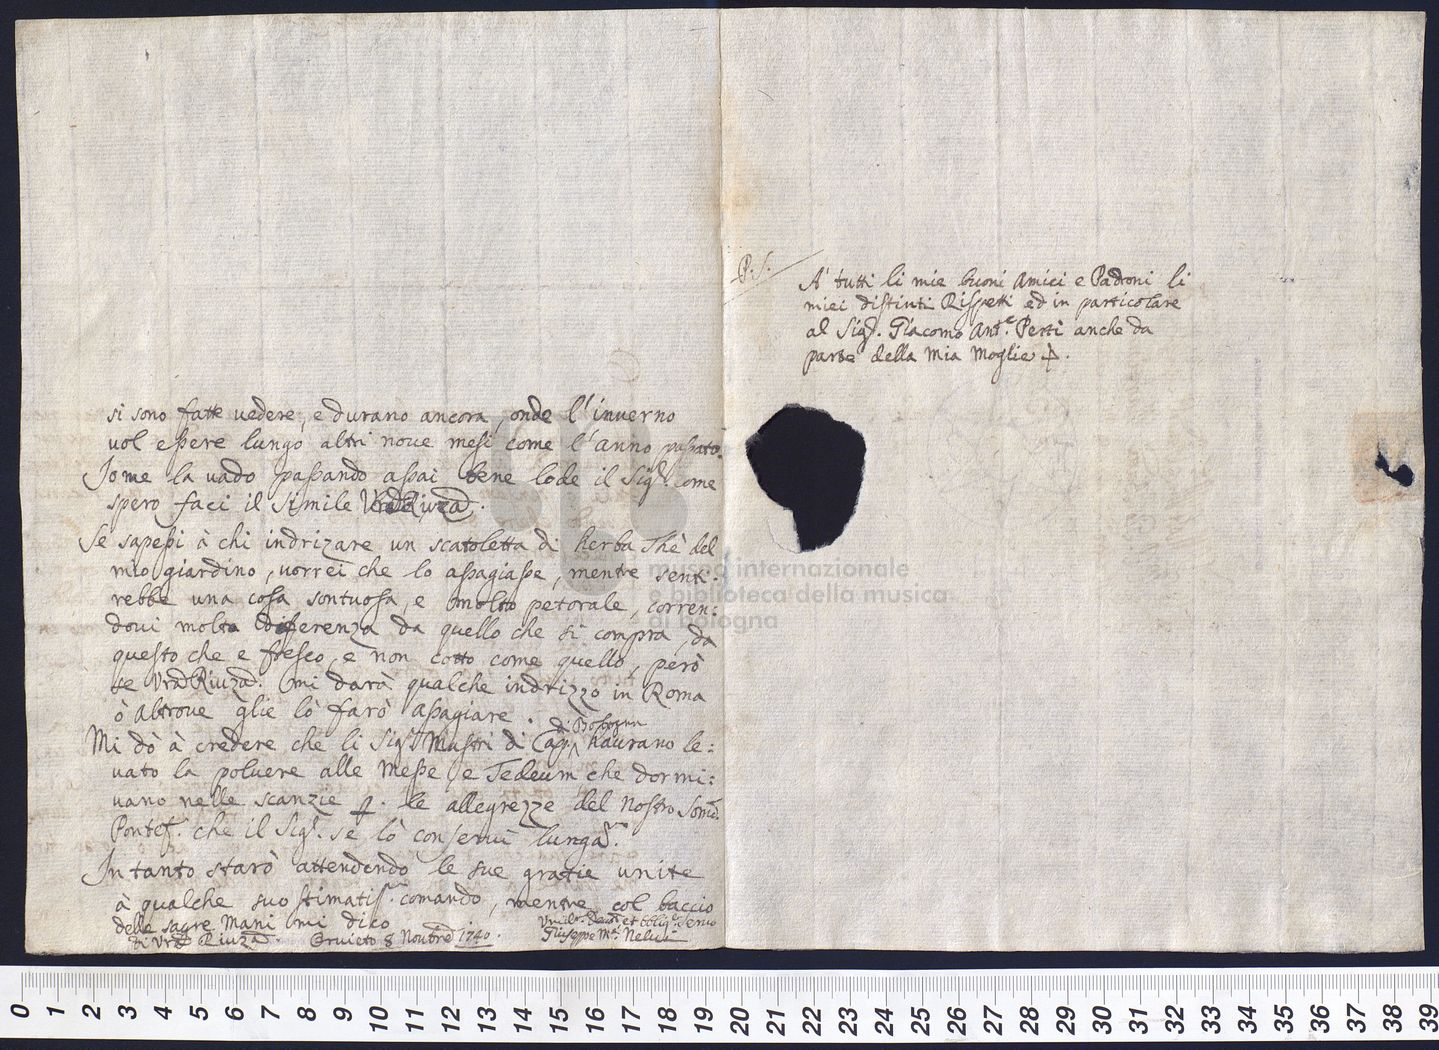 si sono fatte vedere, e durano ancora, onde l'inverno
vol essere lungo altri nove mesi come l'anno passato.
Jo me la vado passando assai bene lode il Sig.r come
spero faci il simile Vra Riuza.
Se sapessi à chi indrizare un scatoletta di herba Thè del
mio giardino, vorrei che lo assagiasse, mentre senti:
rebbe una cosa sontuosa, e molto petorale, corren:
dovi molta differenza da quello che si compra, da
questo che e fresco, e non cotto come quello, però
se Vra Riuza. mi darà qualche indrizzo in Roma
ò altrove glie lò farò assagiare.
di Bologna
Mi dò à credere che li Sig.ri Mastri di Cap. haurano le:
vato la polvere alle Messe, e Tedeum che dormi:
vano nelle scanzie p. le allegrezze del Nostro Som.
Pontef. che il Sig.r se lò conservi lunga.
Intanto starò attendendo le sue gratie unite
à qualche suo stimatiss. comando, mentre col baccio
delle sagre mani mi dico
di Vra Riuza. Orvieto 8 Novbre 1740.
Umil. Devot. et Obblig. Servo
Giuseppe M.a
P:S.
A' tutti li mie buoni Amici e Padroni li
miei distinti Rispetti ed in particolare
al Sig.r Giacomo Ant. Perti anche da
parte della mia Moglie
museo internazionale
e biblioteca della musica
di bologna
0 1 2 3 4 5 6 7 8 9 10 11 12 13 14 15 16 17 18 19 20 21 22 23 24 25 26 27 28 29 30 31 32 33 34 35 36 37 38 39